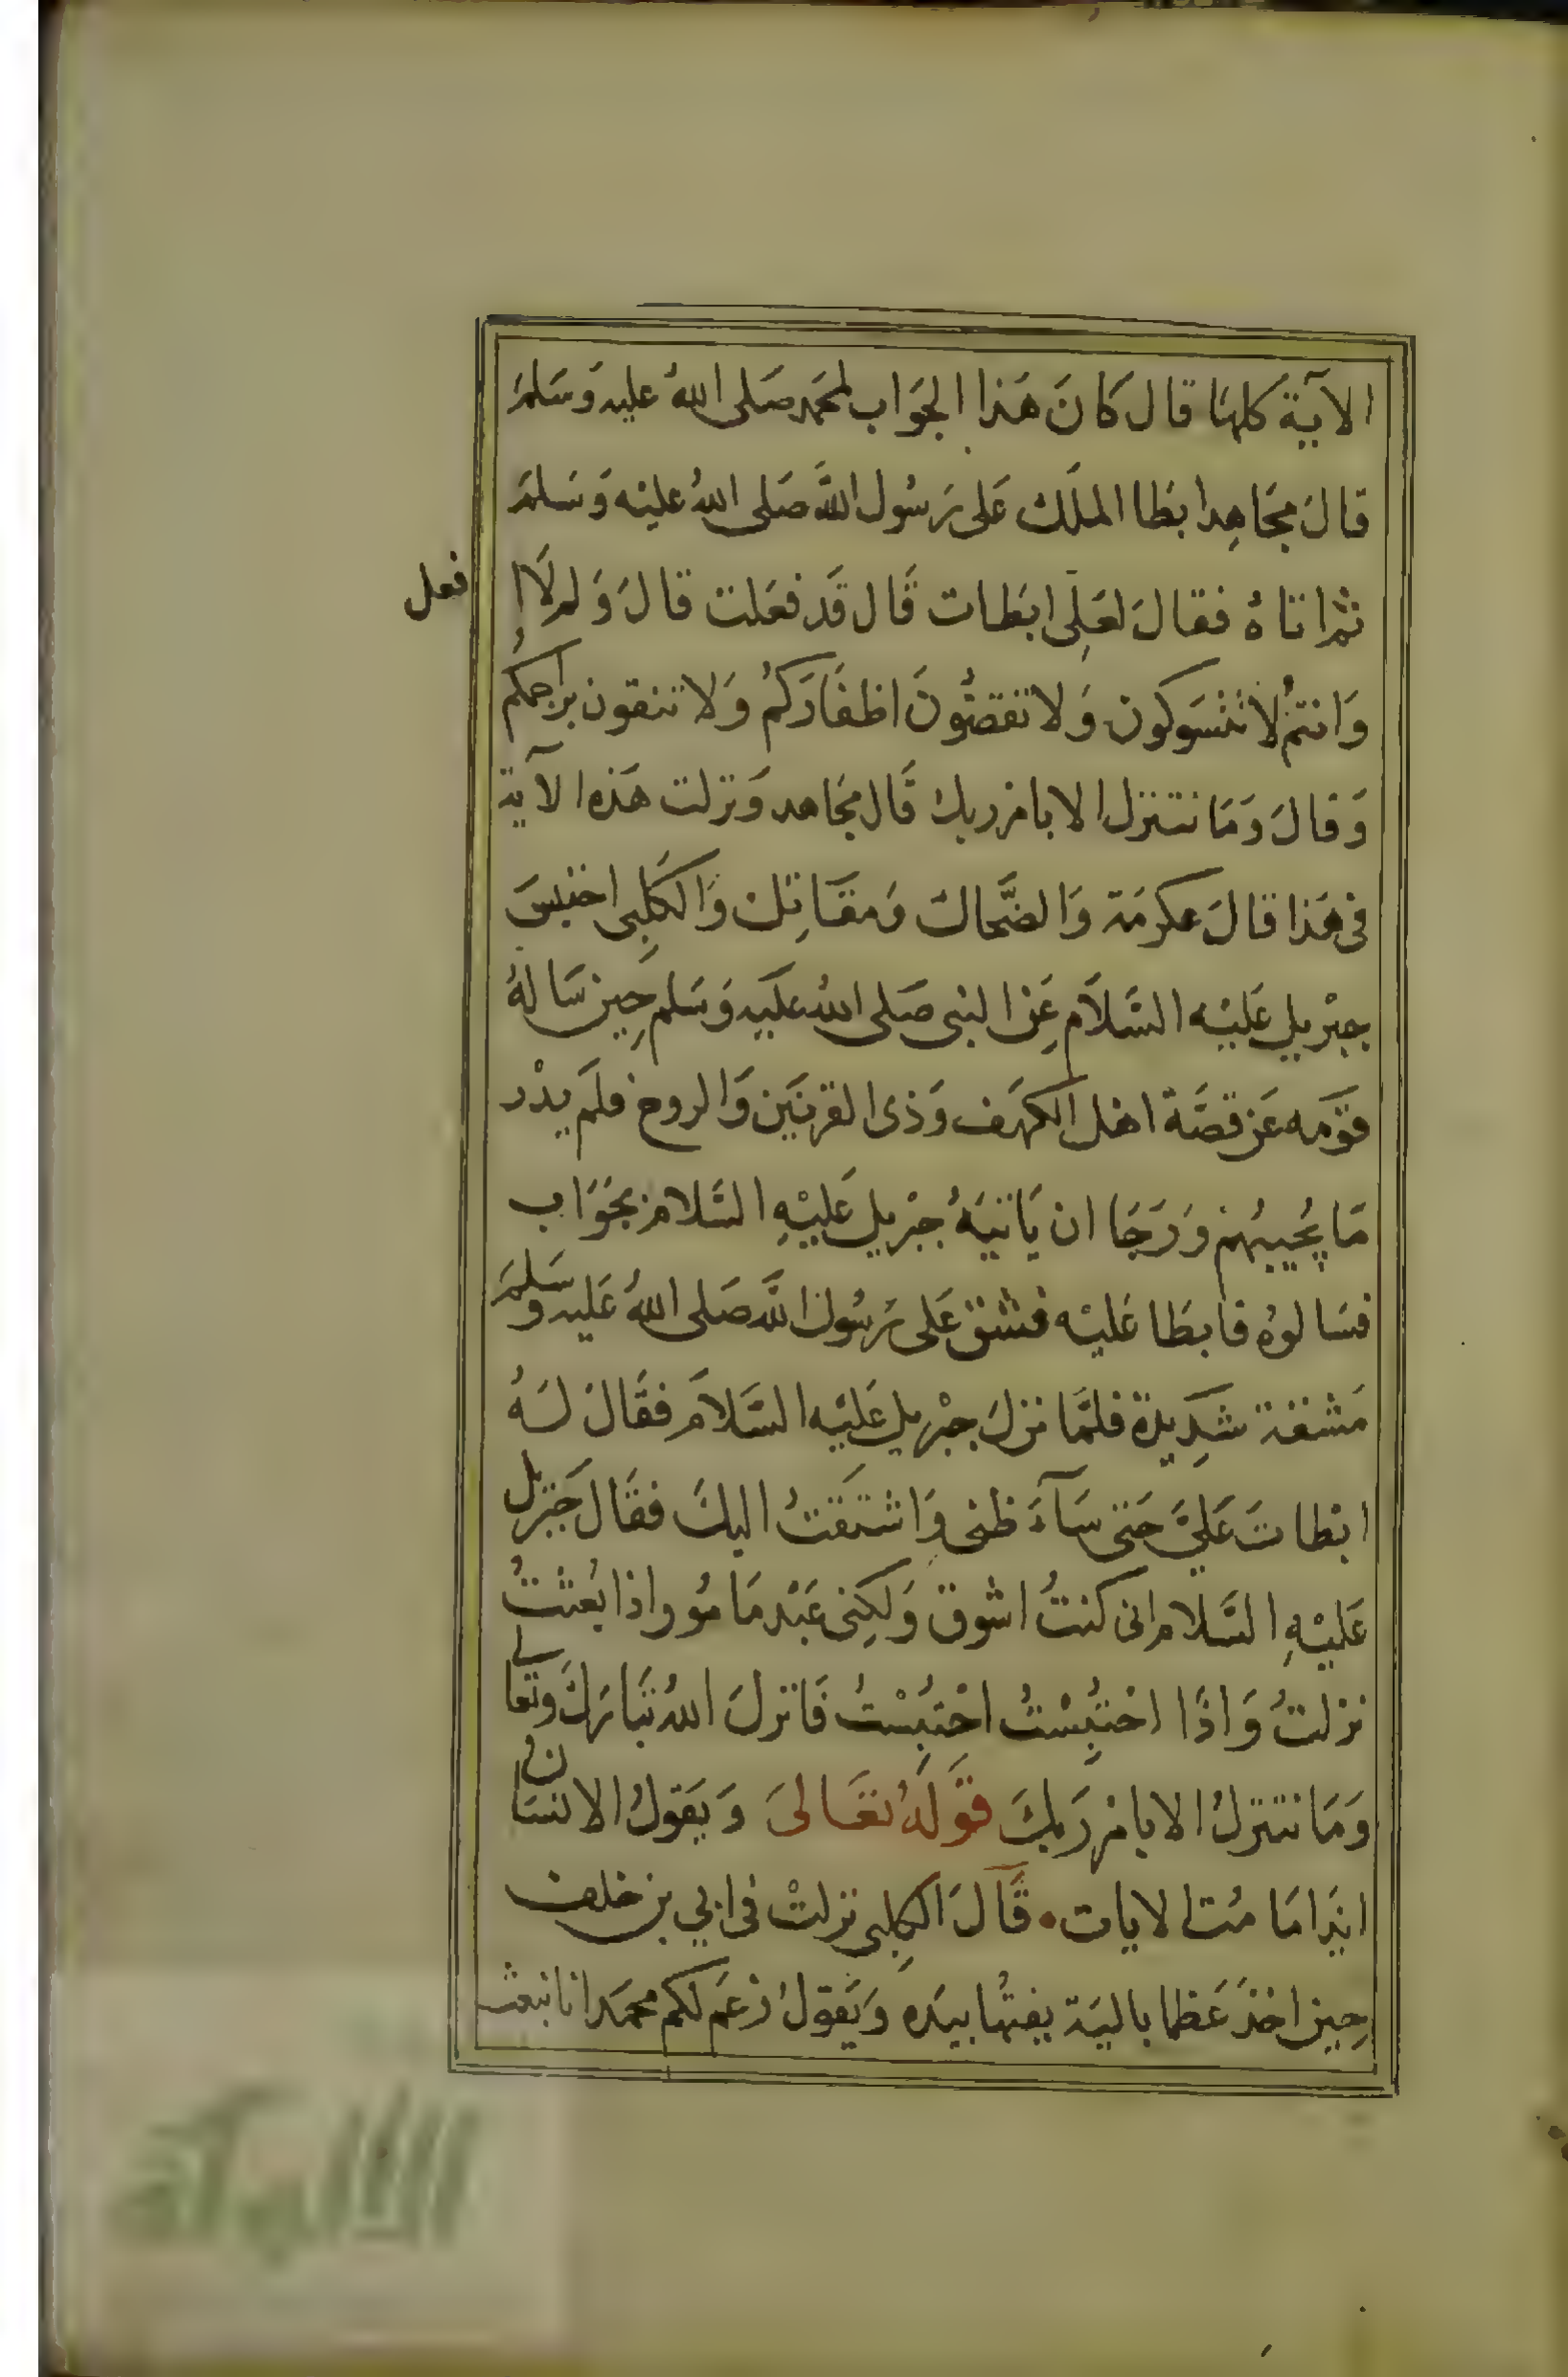 الآية كلها قال كَانَ هَذا الجوَاب لمحمد صَلى اللهُ عليه وَسَلمَ
قالَ مجَاهِد ابطا الملَك عَلى رَسُول اللَّه صَلى اللهُ عليْه وَسَلمَ
ثم اتاهُ فقالَ لعَلِى ابَطات قَال قَد فعَلت قالَ وَلم لَا ا
فعل
وَانتمُ لا تتسَوكون وَلا تقصُّونَ اظفَارَكمُ وَلا تنقون براجمكم
وَقالَ وَمَا نتنزل الا بامر ربك قَال مجَاهد وَنزلت هَذه الآية
فى هَذا قالَ عكرمَة وَالضَّحاك وَمقَاتِل وَالكَلِبى احتبسَ
جبْريل عَليْه السَّلَام عَن النبى صَلى اللهُ عليَه وَسَلم حِين سَالهُ
قوَمه عَن قصَّة اهل الكهَف وَذى القرنَين وَالروح فلَم يدْر
مَا يُجيبهُم وَرَجَا ان يَاتيَهُ جبْريل عَليْهِ السَّلام بجَوَاب
فسَالوهُ فابطَا عَليْه فشق عَلى رَسُول اللَّه صَلى اللهُ عَليه وسَلمَ
مَشقة شَدِيدة فلمَّا نزلَ جبْريل عَليْه السَّلَام فقَالَ لهُ
ابْطاتَ عَليَّ حَتى سَآءَ ظنى وَاشتَقتُ اليكَ فقَال جَبْريل
عَليْهِ السَّلام انى كنتُ اشوق وَلكِنى عَبْد مَامُور اذا بُعثتُ
نزلتُ وَاذَا احْتُبِسْتُ احْتَبِسْتُ فَانزلَ اللهُ تَبَارَكَ وتعَالى
وَمَا نتنزلُ الا بامْر رَبكَ قَوَلهُ تعَالىَ وَيَقولُ الانسَانُ
ائِذا مَا مُت الايات • قَالَ الكلِبى نزلتْ فى ابي بن خلف
حِين اخذَ عَظما باليَة يفتهُا بيَده وَيَقولُ زعَم لكم محمَد انا نبعث